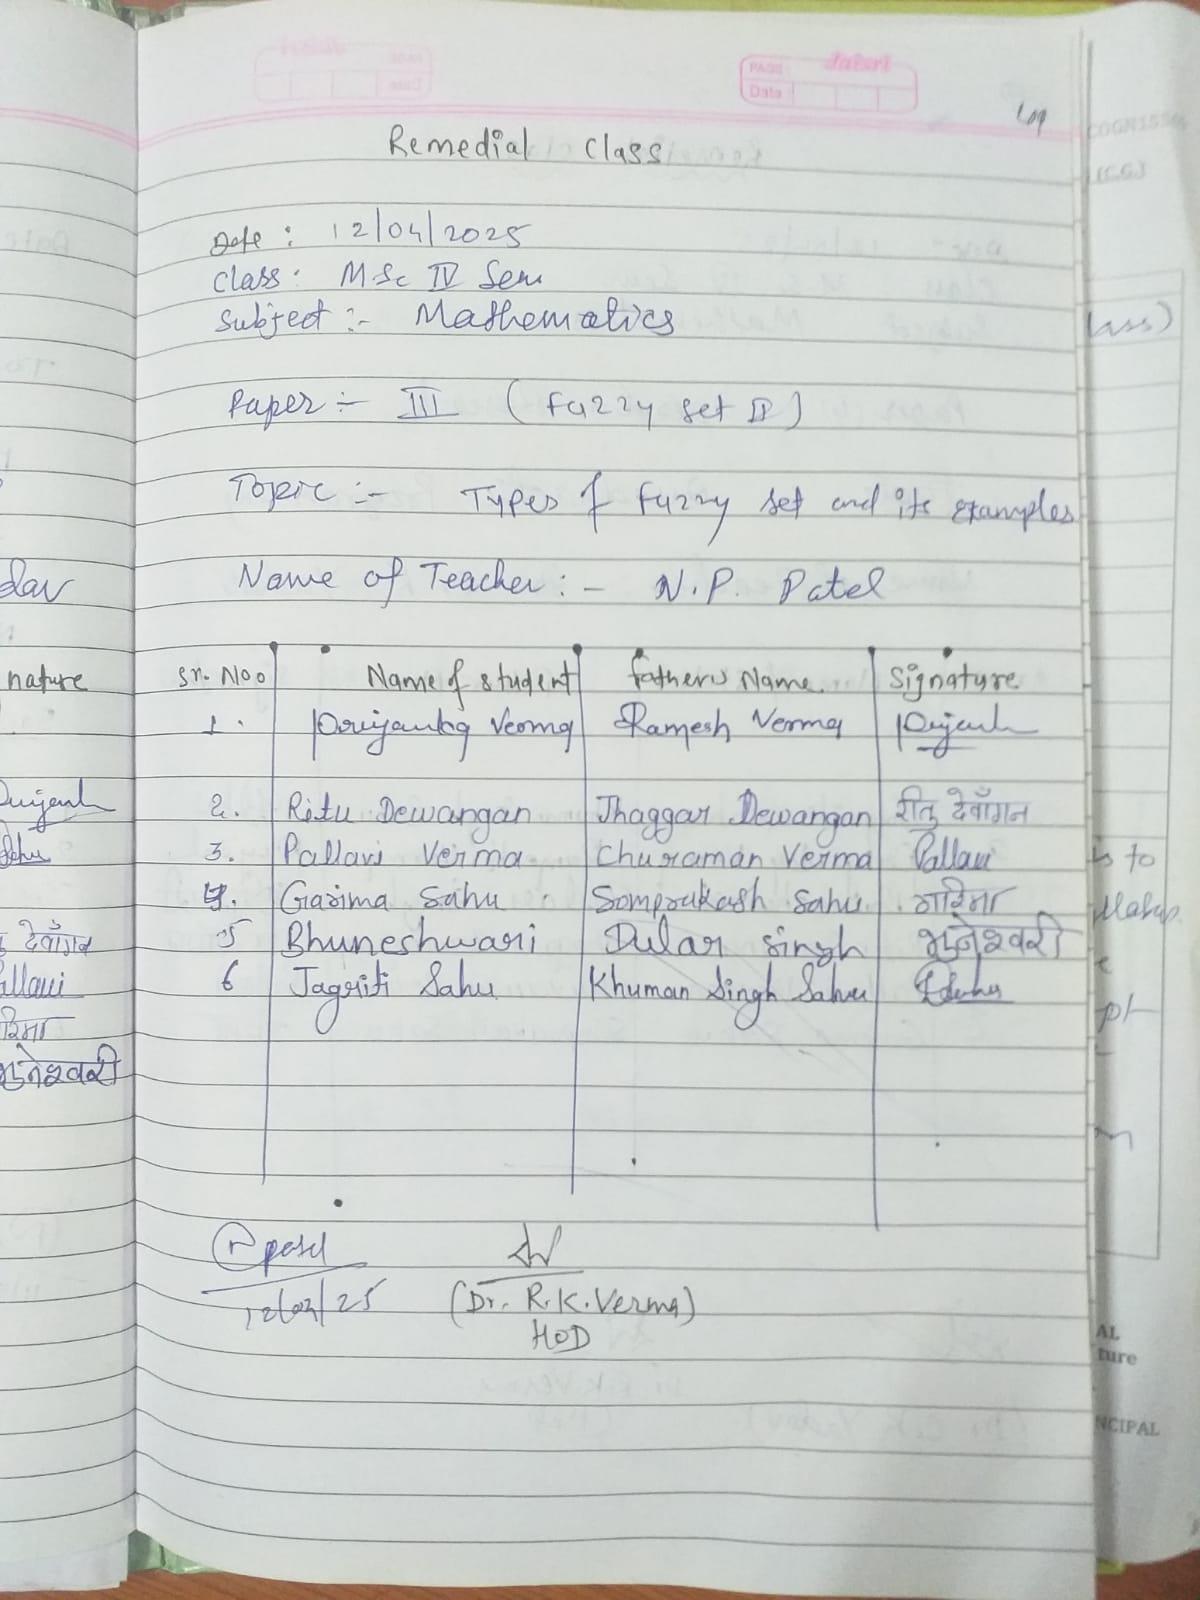 PAGE
Date
Remedial Class
Date : 12/04/2025
Class : MSc IV Sem
Subject :- Mathematics
Paper :- III (Fuzzy set II)
Topic :- Types of Fuzzy set and its examples
Name of Teacher :- N.P. Patel
Sr. No. Name of student Father's Name Signature
1. Priyanka Verma Ramesh Verma
2. Ritu Dewangan Jhaggar Dewangan रीतु देवाँगन
3. Pallavi Verma Churaman Verma Pallavi
4. Garima Sahu Somprakash Sahu गरिमा
5 Bhuneshwari Dular Singh भुनेश्वरी
6 Jagriti Sahu Khuman Singh Sahu
(Dr. R.K. Verma)
HOD
nature
देवाँगन
भुनेश्वरी
(C.G.)
AL
ture
NCIPAL